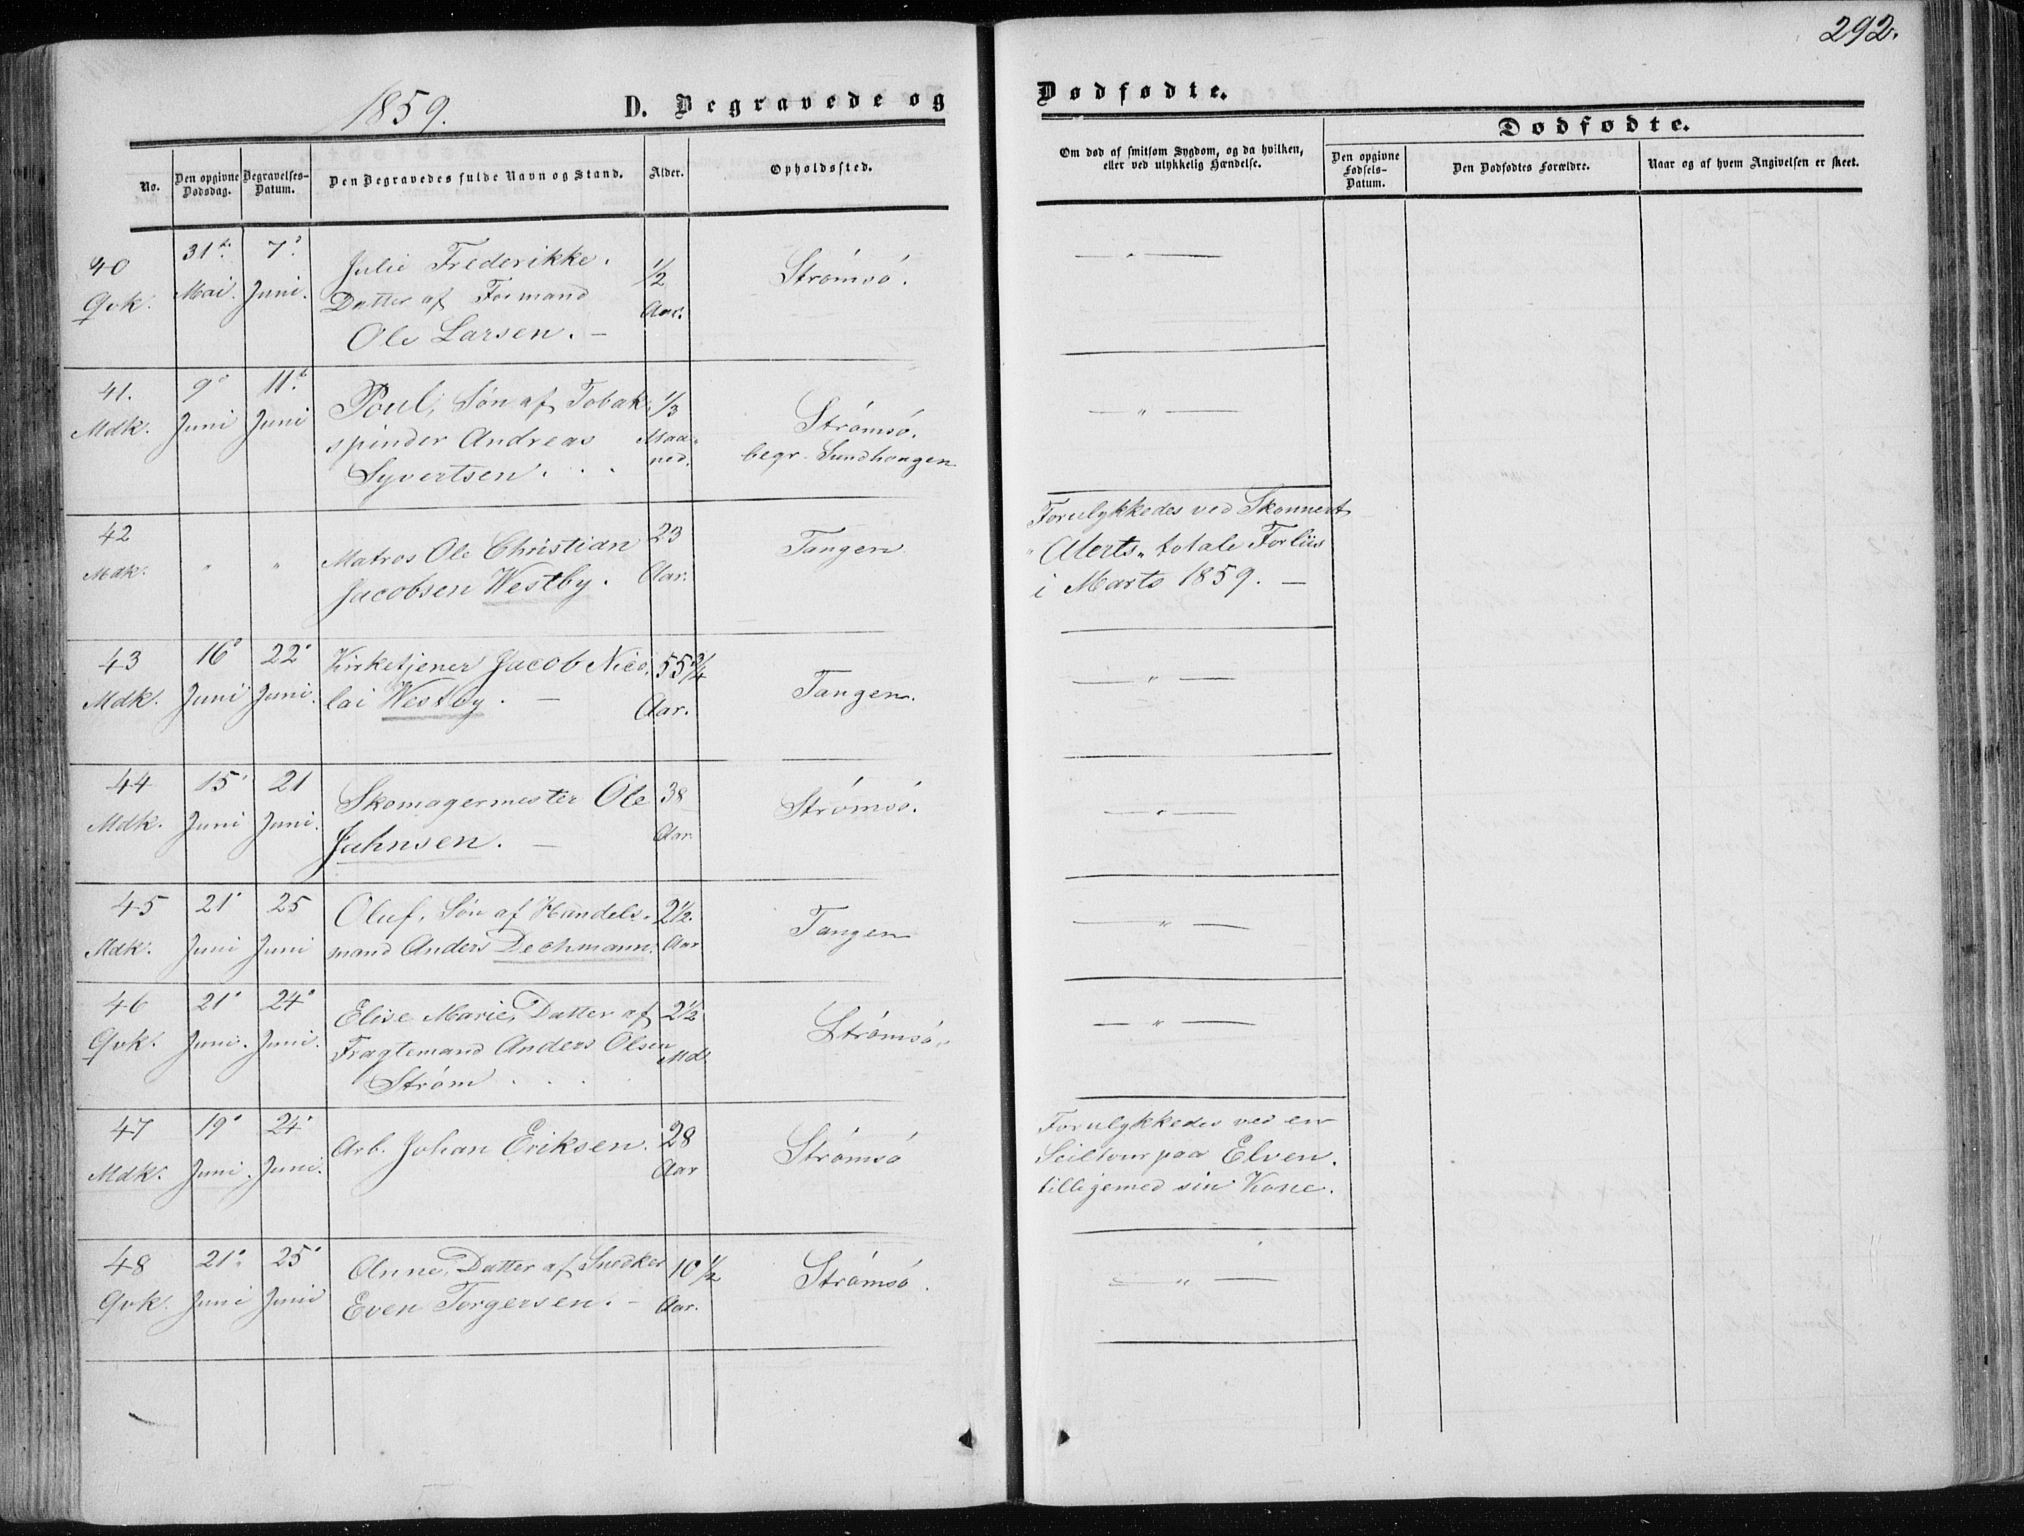 292.
1859.
D. Begravede og
Dødfødte.
Dødfødte.
No.
Den opgivne Dødsdag.
Begravelses-Datum.
Den Begravedes fulde Navn og Stand.
Alder.
Opholdssted.
Om død af smitsom Sygdom, og da hvilken, eller ved ulykkelig Hændelse.
Den opgivne Fødsels-Datum.
Den Dødfødtes Forældre.
Naar og af hvem Angivelsen er skeet.
40 Qvk.
31te Mai.
7de Juni.
Julie Frederikke.
Datter af Formand
Ole Larsen. –
1/2 Aar.
Strømsø.
— " —
41. Mdk.
9de Juni
11te Juni
Poul, Søn af Tobak-
spinder Andreas
Syvertsen.
1/3 Maa-
ned.
Strømsø.
begr. Sundhaugen
— " —
42 Mdk.
"
"
Matros Ole Christian
Jacobsen Westby.
23 Aar.
Tangen
Forulykkedes ved Skonnert
"Alerts" totale Forliis
i Marts 1859. –
43 Mdk.
16de Juni
22de Juni.
Kirketjener Jacob Nico-
lai Westby. –
55 3/4 Aar.
Tangen.
— " —
44 Mdk.
15 Juni
21 Juni.
Skomagermester Ole
Jahnsen. –
38 Aar.
Strømsø.
— " —
45 Mdk.
21 Juni
25 Juni
Oluf, Søn af Handels-
mand Anders Dechmann.
2 1/2 Aar
Tangen
— " —
46 Qvk.
21de Juni.
24de Juni.
Elise Marie, Datter af
Fragtemand Anders Olsen
Strøm
2 1/2 Md.
Strømsø.
— " —
47 Mdk.
19de Juni.
24de Juni.
Arb. Johan Eriksen.
28 Aar
Strømsø
Forulykkedes ved en
Seiltour paa Elven.
tilligemed sin Kone.
48 Qvk.
21de Juni
25de Juni
Anne, Datter af Snedker
Even Torgersen. –
10 1/2 Aar.
Strømsø.
— " —